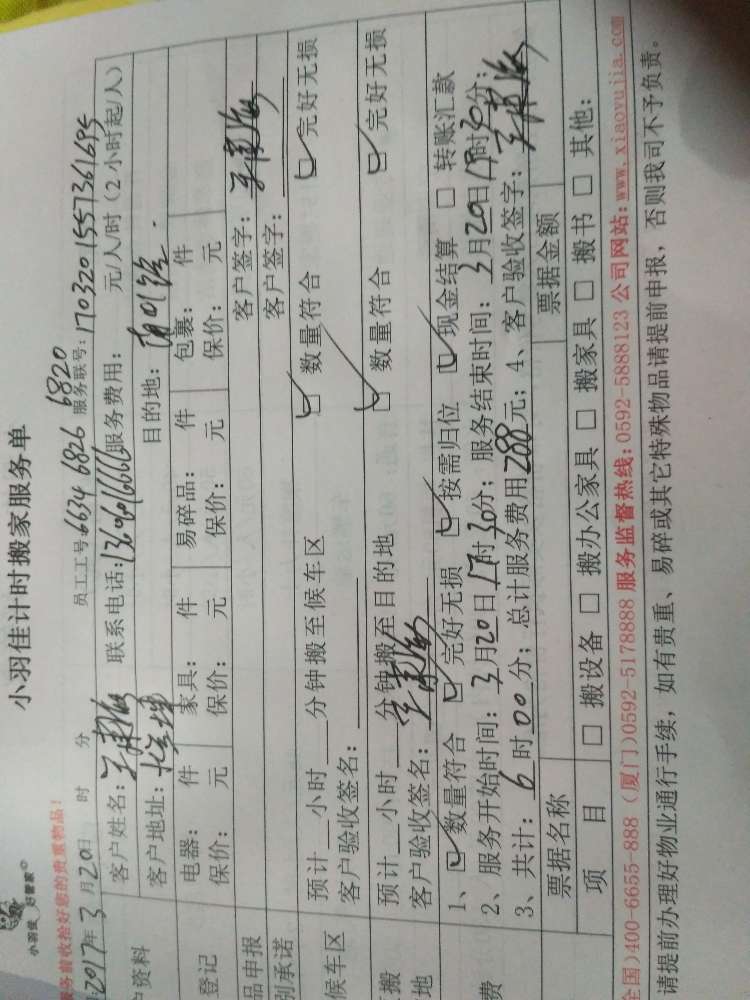 小羽佳计时搬家服务单
小羽佳 好管家
服务前收拾好您的贵重物品!
2017年3月20日 时 分 员工工号:6634 6826 6820 服务联号:1703201557361695
客户姓名: 联系电话: 服务费用: 元/人/时(2小时起/人)
户资料
客户地址: 目的地:
登记
电器: 件 家具: 件 易碎品: 件 包裹: 件
保价: 元 保价: 元 保价: 元 保价: 元
品申报 客户签字:
别承诺 客户签字:
候车区
预计 小时 分钟搬至候车区 数量符合 完好无损
客户验收签名:
搬
地
预计 小时 分钟搬至目的地 数量符合 完好无损
客户验收签名:
1、 数量符合 完好无损 按需归位 现金结算 转账汇款
2、服务开始时间:3月20日 时30分;服务结束时间:3月20日 时30分;
费
3、共计:6时00分;总计服务费用288元;4、客户验收签字:
票据名称 票据金额
项 目 搬设备 搬办公家具 搬家具 搬书 其他:
全国)400-6655-888 (厦门)0592-5178888 服务监督热线:0592-5888123 公司网站:www.xiaoyujia.com
请提前办理好物业通行手续,如有贵重、易碎或其它特殊物品请提前申报,否则我司不予负责。